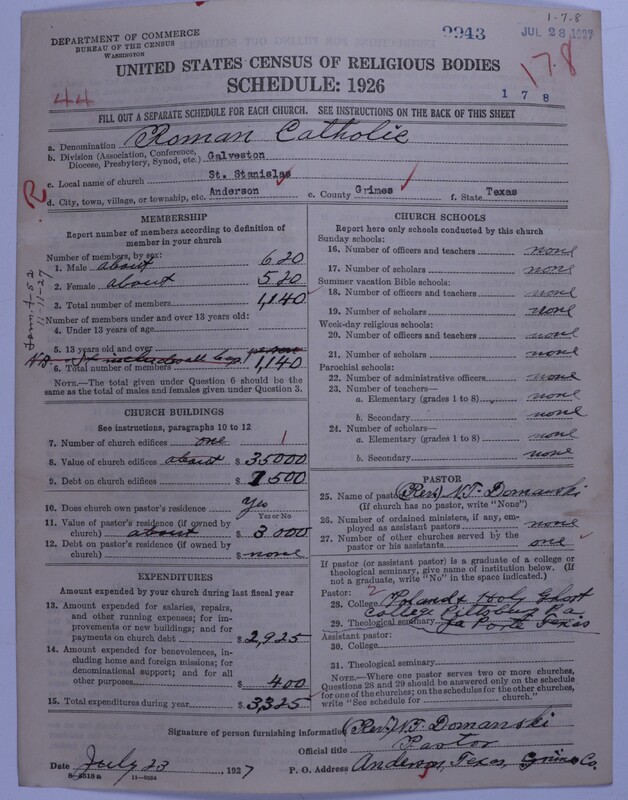 1-7-8
DEPARTMENT OF COMMERCE
BUREAU OF THE CENSUS
WASHINGTON
9943
JUL 28 1927
UNITED STATES CENSUS OF RELIGIOUS BODIES
178
SCHEDULE: 1926
44
1 7 8
FILL OUT A SEPARATE SCHEDULE FOR EACH CHURCH. SEE INSTRUCTIONS ON THE BACK OF THIS SHEET
a. Denomination Roman Catholic
b. Division (Association, Conference, Diocese, Presbytery, Synod, etc.) Galveston
c. Local name of church St. Stanislas
d. City, town, village, or township, etc. Anderson e. County Grimes f. State Texas
R
MEMBERSHIP
Report number of members according to definition of
member in your church
Number of members, by sex:
1. Male about 620
2. Female about 520
3. Total number of members 1,140
Number of members under and over 13 years old:
4. Under 13 years of age
5. 13 years old and over
6. Total number of members 1,140
NOTE.—The total given under Question 6 should be
same as the total of males and females given under Question 3.
11-11-27
CHURCH BUILDINGS
See instructions, paragraphs 10 to 12
7. Number of church edifices one 1
8. Value of church edifices about $ 35000
9. Debt on church edifices $ 1500
10. Does church own pastor's residence Yes
Yes or No
11. Value of pastor's residence (if owned by
church) about $ 3000
12. Debt on pastor's residence (if owned by
church) $ none
EXPENDITURES
Amount expended by your church during last fiscal year
13. Amount expended for salaries, repairs,
and other running expenses; for improvements
or new buildings; and for
payments on church debt $ 2,925
14. Amount expended for benevolences,
including home and foreign missions; for
denominational support; and for all
other purposes $ 400
15. Total expenditures during year $ 3,325
CHURCH SCHOOLS
Report here only schools conducted by this church
Sunday schools:
16. Number of officers and teachers none
17. Number of scholars none
Summer vacation Bible schools:
18. Number of officers and teachers none
19. Number of scholars none
Week-day religious schools:
20. Number of officers and teachers none
21. Number of scholars none
Parochial schools:
22. Number of administrative officers none
23. Number of teachers—
a. Elementary (grades 1 to 8) none
b. Secondary none
24. Number of scholars—
a. Elementary (grades 1 to 8) none
b. Secondary none
PASTOR
25. Name of pastor (Rev) N.T. Domanski
(If church has no pastor, write "None")
26. Number of ordained ministers, if any, employed
as assistant pastors none
27. Number of other churches served by the
pastor or his assistants one
If pastor (or assistant pastor) is a graduate of a college or
theological seminary, give name of institution below. (If
not a graduate, write "No" in the space indicated.)
Pastor: 2
28. College Poland & Holy Ghost
College Pittsburg Pa
29. Theological seminary La Porte Texas
Assistant pastor:
30. College
31. Theological seminary
NOTE.—Where one pastor serves two or more churches,
Questions 28 and 29 should be answered only on the schedule
for one of the churches; on the schedules for the other churches,
write "See schedule for church."
Signature of person furnishing information (Rev) N.T. Domanski
Official title Pastor
Date July 23, 1927 P. O. Address Anderson, Texas, Grimes Co.
8-5518 a 11-9254